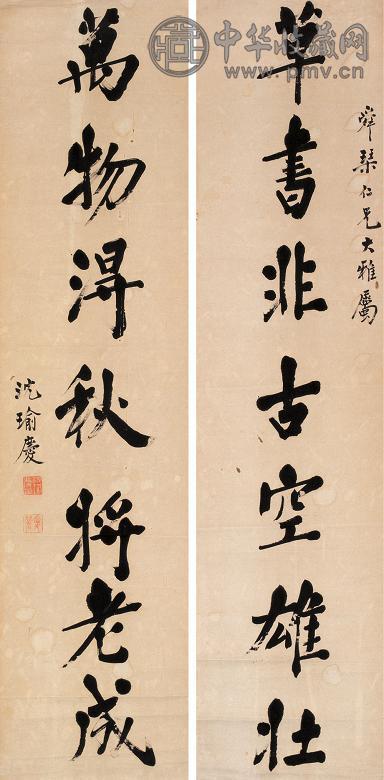 中华收藏网
www.pmv.cn
舜琴仁兄大雅屬
草書非古空雄壯
萬物得秋將老成
沈瑜慶